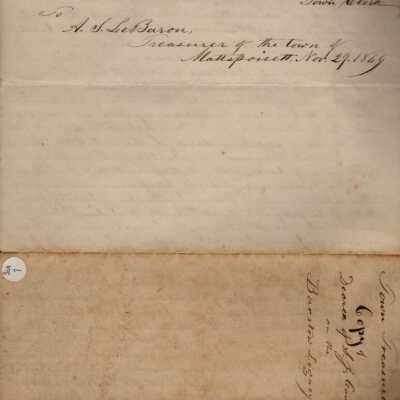 Town Clerk
To
A. S. LeBaron,
Treasurer of the town of
Mattapoisett, Nov. 29. 1869
Town Treasurer
Copy
Decree of S. J.
on the
Barstow Legacy